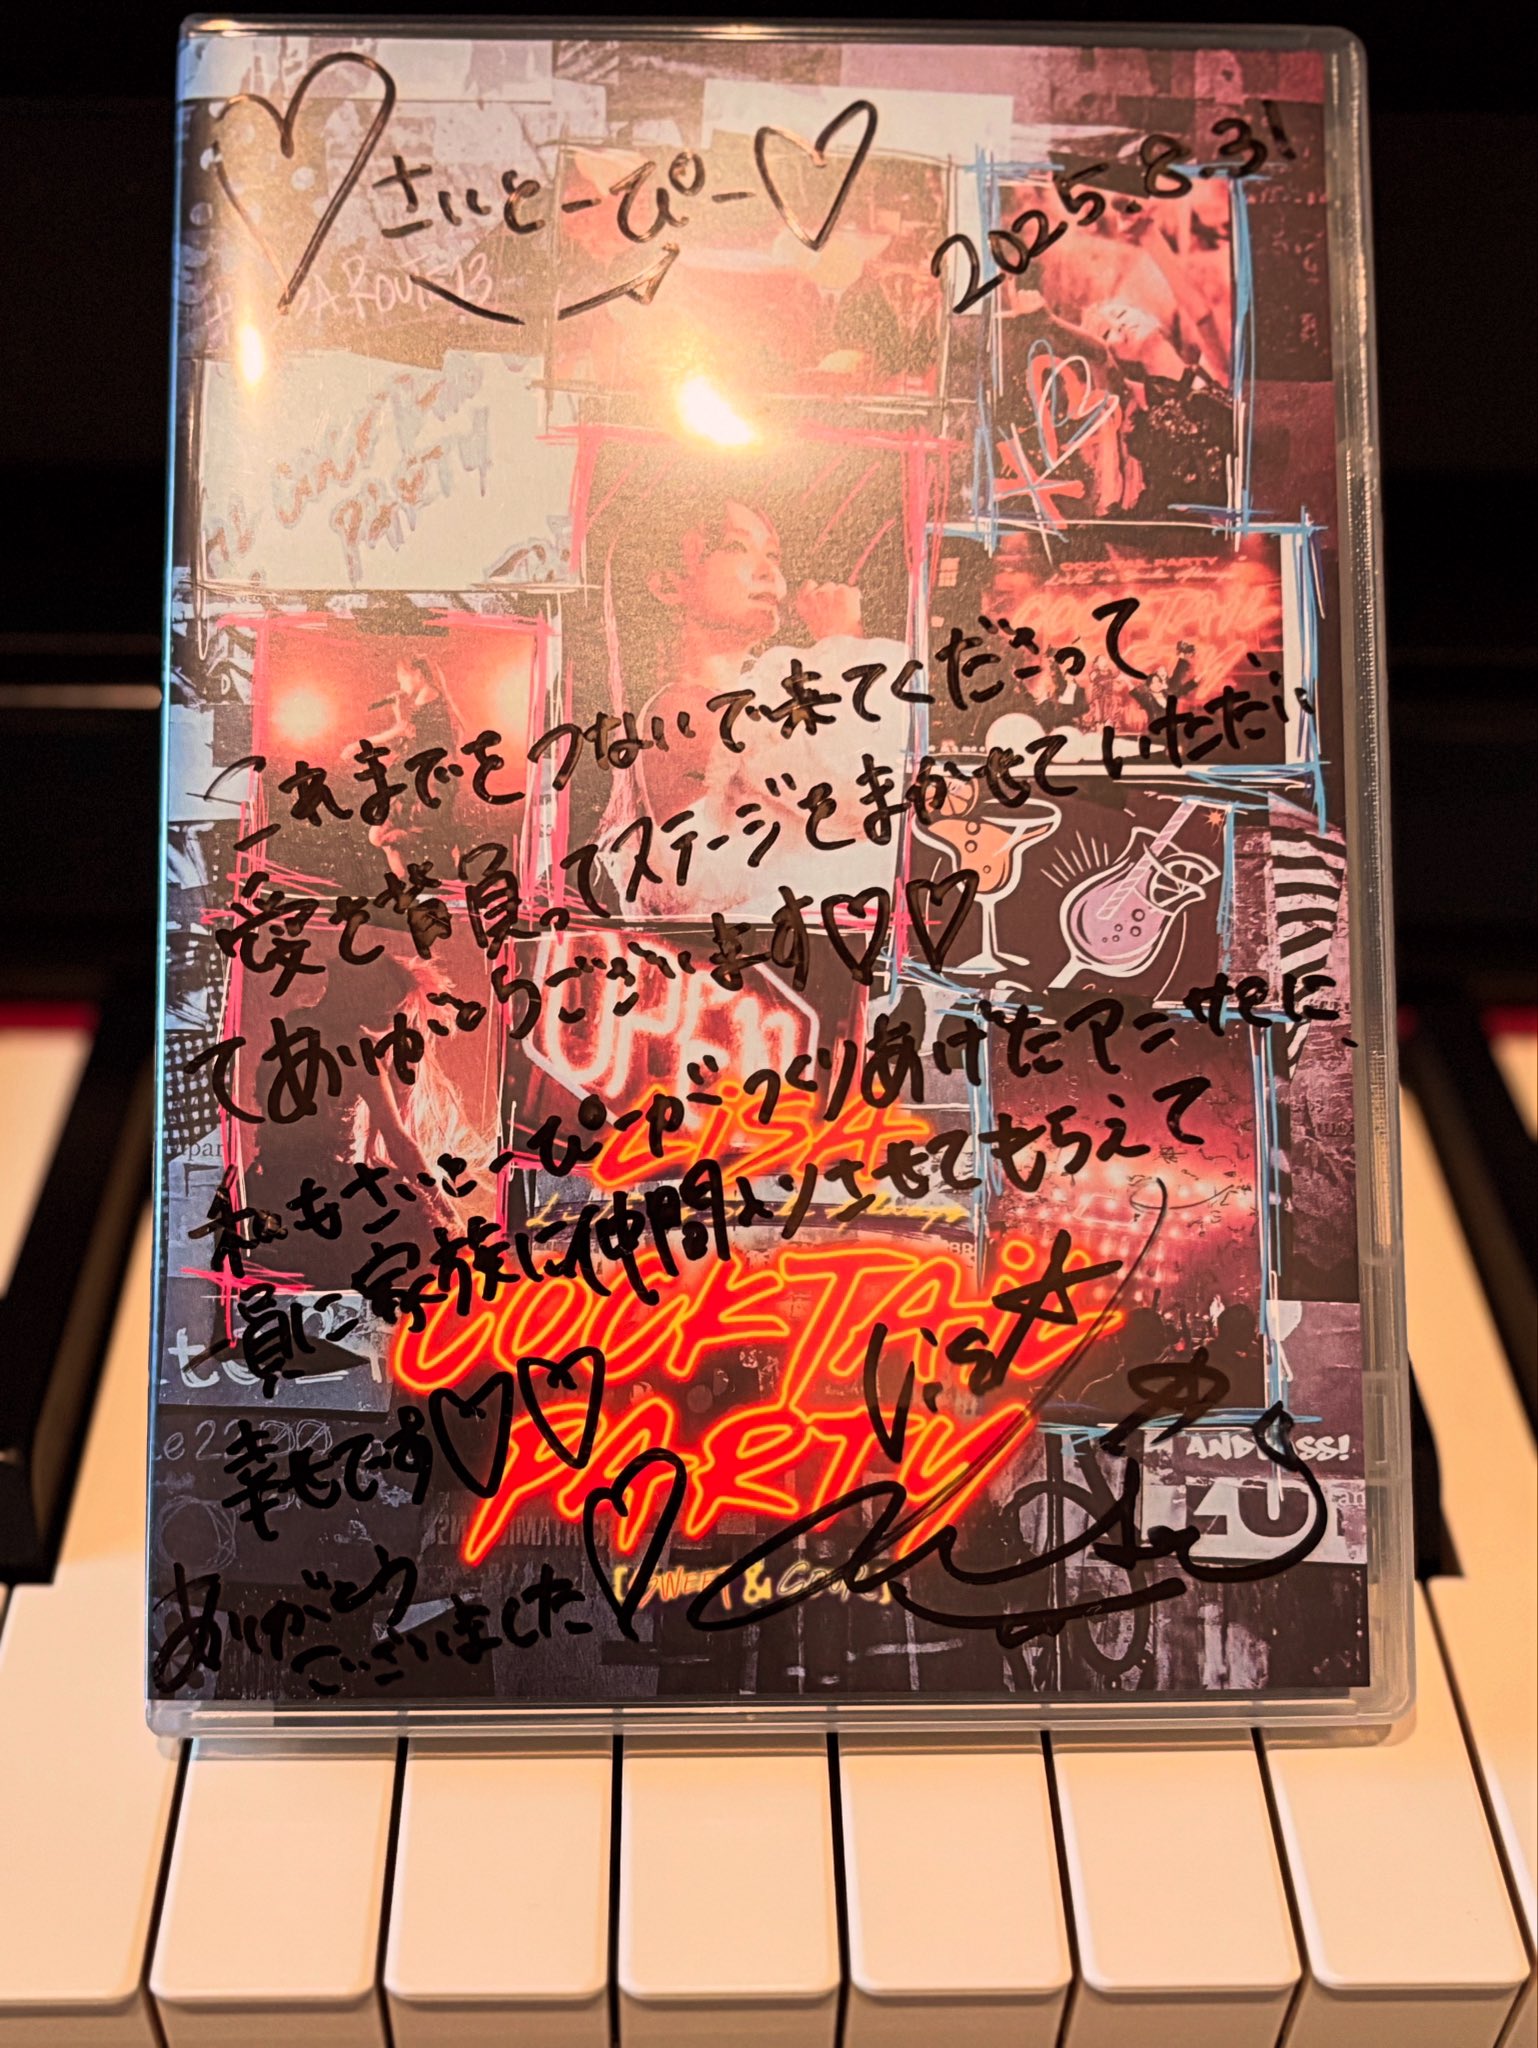 ♡さいとーぴー♡
2025.8.3!
これまでをつないで来てくださって
愛を背負ってステージをまかせていただい
てありがとうございます♡♡
私もさいとーぴーがつくりあげたアニサマに、
一員に家族に仲間入りさせてもらえて
幸せです♡♡
ありがとう
ございました♡
LiSA
OPEN
LiSA
COCKTAIL
PARTY
[SWEET & SOUR]
COCKTAIL PARTY